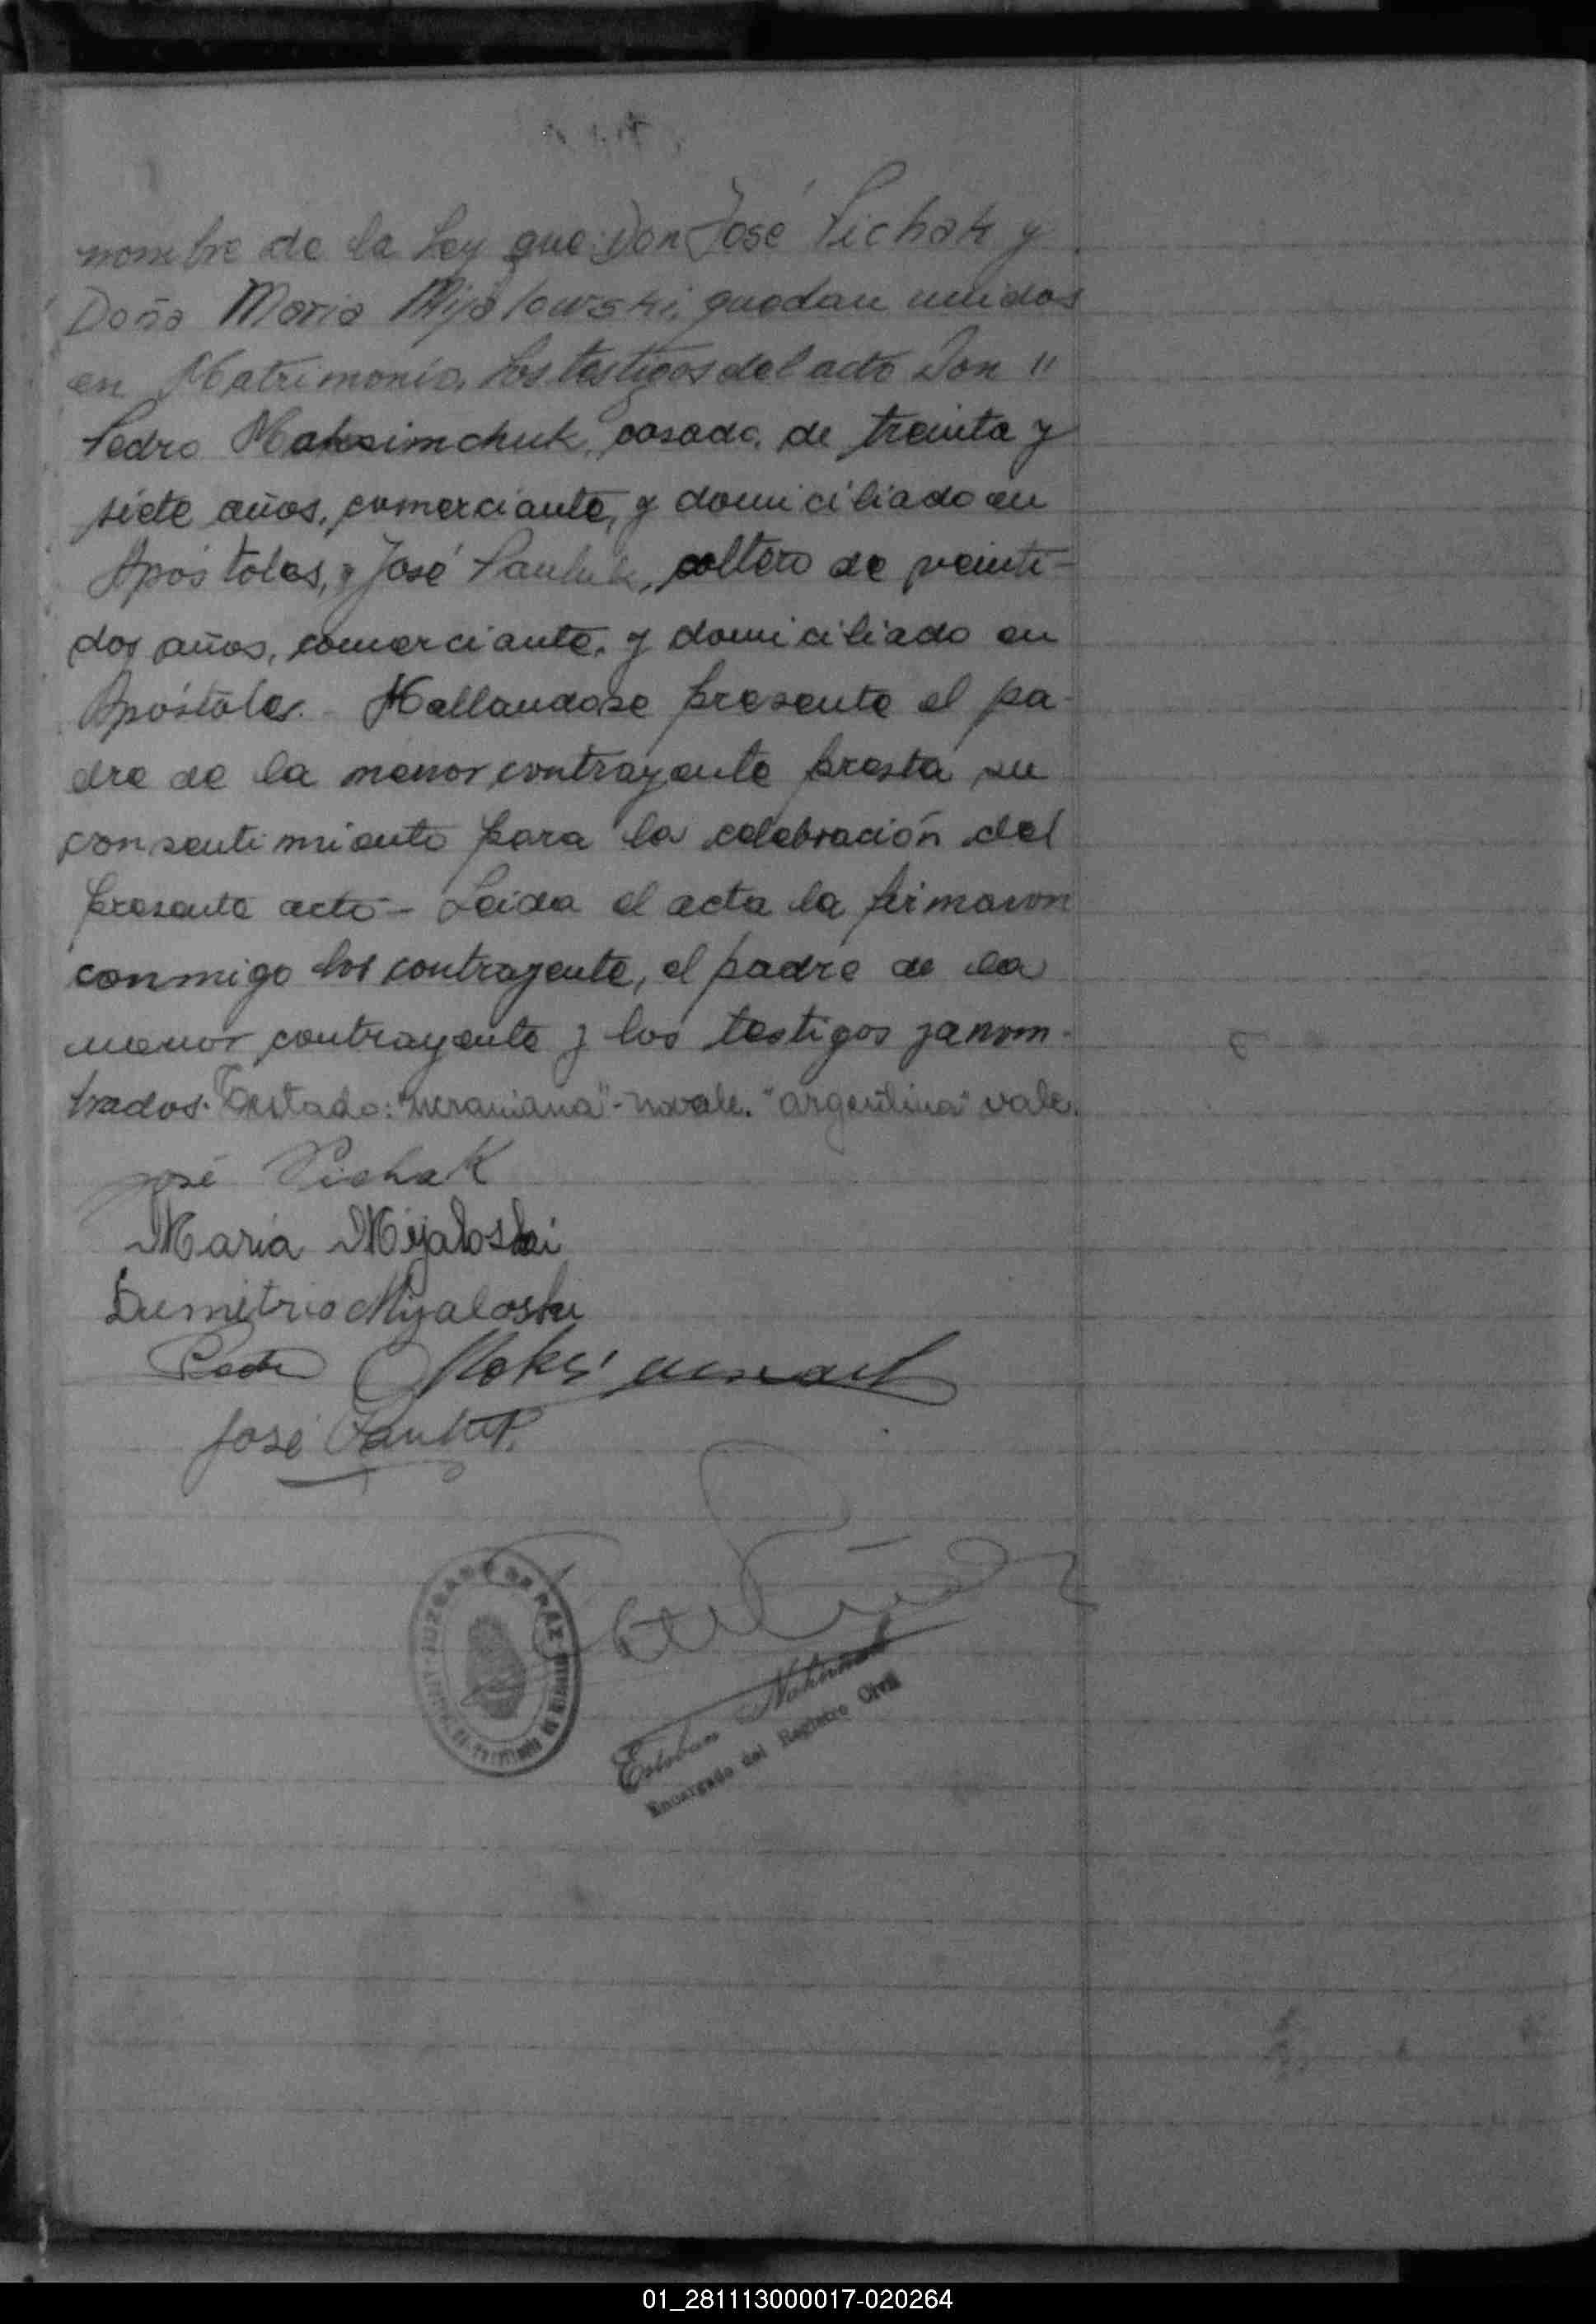 nombre de la Ley que Don José Pichak y
Doña Maria Mijalowski, quedan unidos
en Matrimonio, Los testigos del acto Don "
Pedro Maksimchuk, casado, de treinta y
siete años, comerciante, y domiciliado en
Apóstoles, y José Paulük, soltero de veinti-
dos años, comerciante, y domiciliado en
Apóstoles. - Hallandose presente el pa-
dre de la menor contrayente presta su
consentimiento para la celebración del
presente acto - Leida el acta la firmaron
conmigo los contrayente, el padre de la
menor contrayente y los testigos ya nom-
brados. Testado: "ucraniana" - no vale. "argentina" vale.
José Pichak
Maria Mijaloski
Dumitrio Mijaloski
Pedro
José
JUZGADO DE PAZ
Esteban
Encargado del Registro Civil
01_281113000017-020264